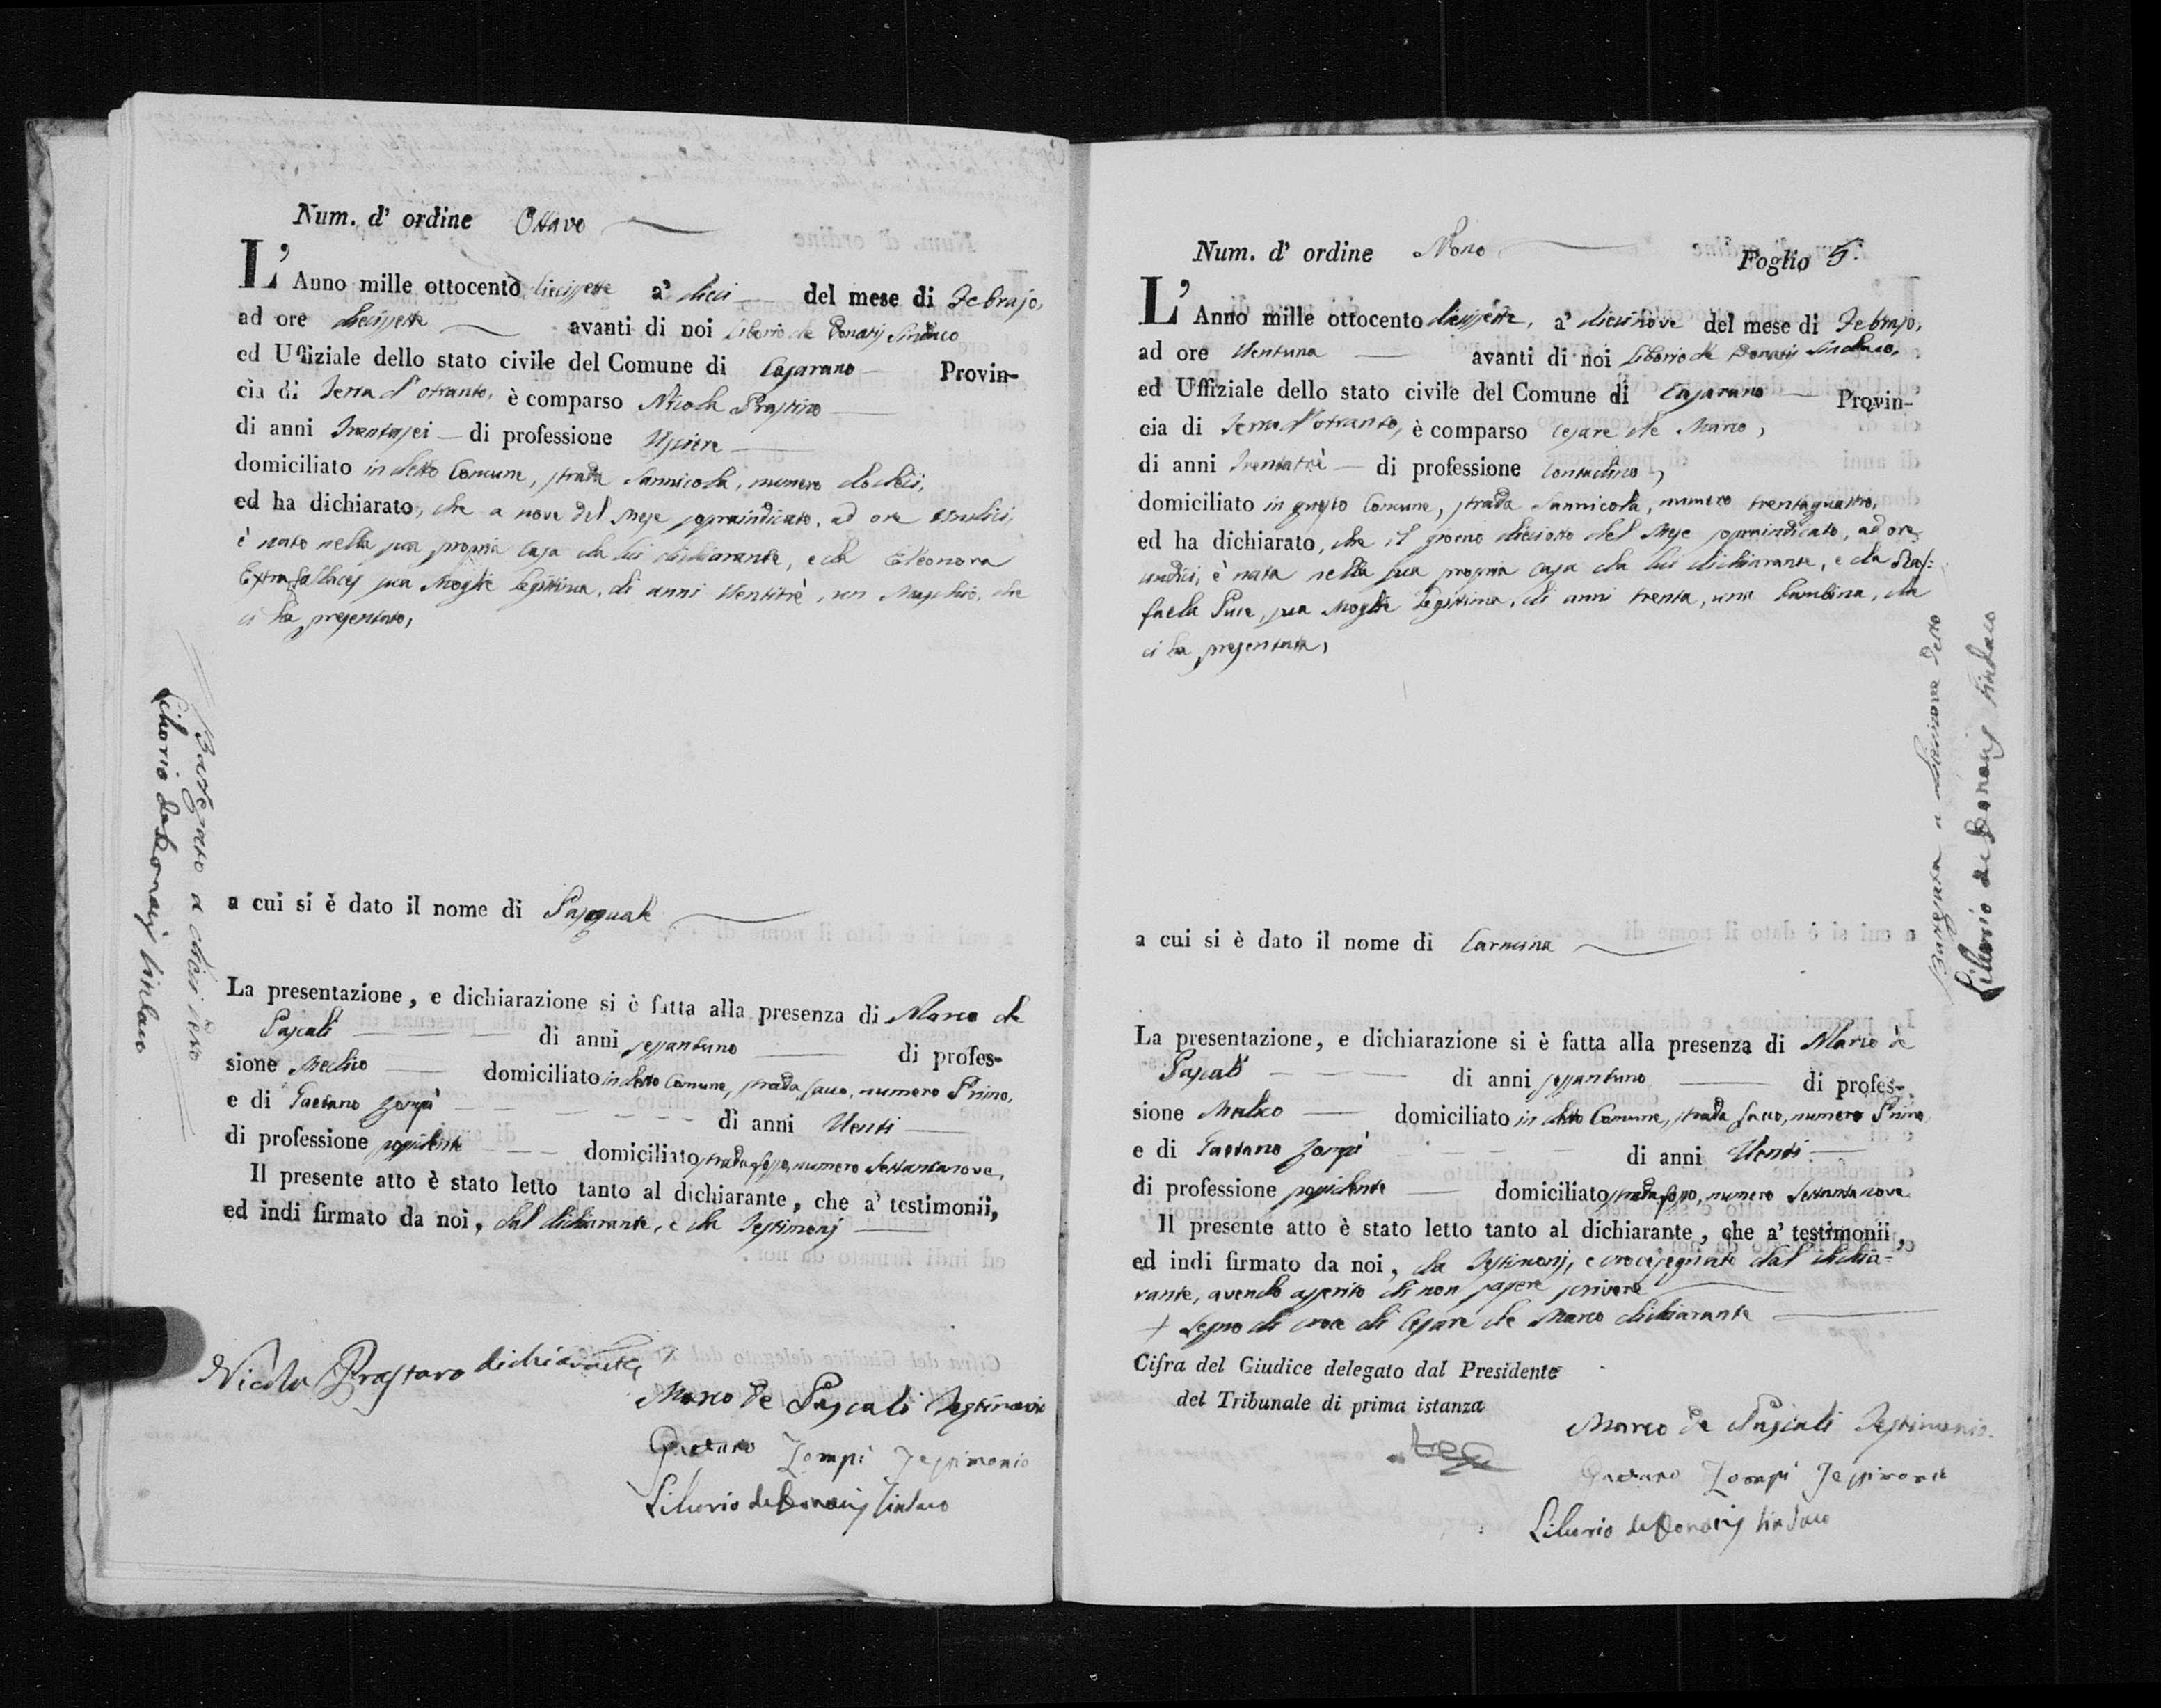 Num. d' ordine Ottavo
L' Anno mille ottocento diecissette a' dieci del mese di Febrajo,
ad ore diecissette avanti di noi Liborio de Donatis Sindaco
ed Uffiziale dello stato civile del Comune di Casarano Provin-
cia di Terra d'otranto, è comparso Nicola
di anni Trentasei di professione Usciere
domiciliato in detto Comune, strada Sannicola, numero dodeci,
ed ha dichiarato, che a nove del Mese sopraindicato, ad ore
è nato nella sua propria casa da lui dichiarante, e da Eleonora
sua Moglie legittima, di anni Ventitrè, un Maschio, che
ci ha presentato,
a cui si è dato il nome di Pasquale
La presentazione, e dichiarazione si è fatta alla presenza di Marco de
Pascali di anni sessantuno di profes-
sione Medico domiciliato in detto Comune, strada sacco, numero Primo,
e di Gaetano Zompì di anni Venti
di professione possidente domiciliato strada fosso, numero Settantanove,
Il presente atto è stato letto tanto al dichiarante, che a' testimonii,
ed indi firmato da noi, dal dichiarante, e da Testimonj
Nicola Prastaro dichiarante
Marco de Pascali Testimonio
Gaetano Zompi Testimonio
Liborio de Donatis Sindaco
Battezzato a dieci detto
Liborio de Donatis Sindaco
Num. d' ordine Nono
Foglio 5.
L' Anno mille ottocento diecissette, a' diecinove del mese di Febrajo,
ad ore Ventuna avanti di noi Liborio de Donatis Sindaco,
ed Uffiziale dello stato civile del Comune di Casarano Provin-
cia di Terra d'otranto, è comparso Cesare de Marco,
di anni Trentatrè di professione Contadino,
domiciliato in questo Comune, strada Sannicola, numero trentaquattro,
ed ha dichiarato, che il giorno dieciotto del Mese sopraindicato, ad ore
undici, è nata nella sua propria casa da lui dichiarante, e da Raf=
faela Puce, sua Moglie legittima, di anni trenta, una bambina, che
ci ha presentata,
a cui si è dato il nome di Carmina
La presentazione, e dichiarazione si è fatta alla presenza di Marco de
Pascali di anni sessantuno di profes-
sione Medico domiciliato in detto Comune, strada sacco, numero Primo
e di Gaetano Zompì di anni Venti
di professione possidente domiciliato strada fosso, numero Settantanove
Il presente atto è stato letto tanto al dichiarante, che a' testimonii,
ed indi firmato da noi, da Testimonj, e crocesegnato dal dichia=
rante, avendo asserito di non sapere scrivere
+ Segno di croce di Cesare de Marco dichiarante
Cifra del Giudice delegato dal Presidente
del Tribunale di prima istanza
Marco de Pascali Testimonio.
Gaetano Zompi Testimonio
Liborio de Donatis Sindaco
Battezzata a diecinove detto
Liborio de Donatis Sindaco